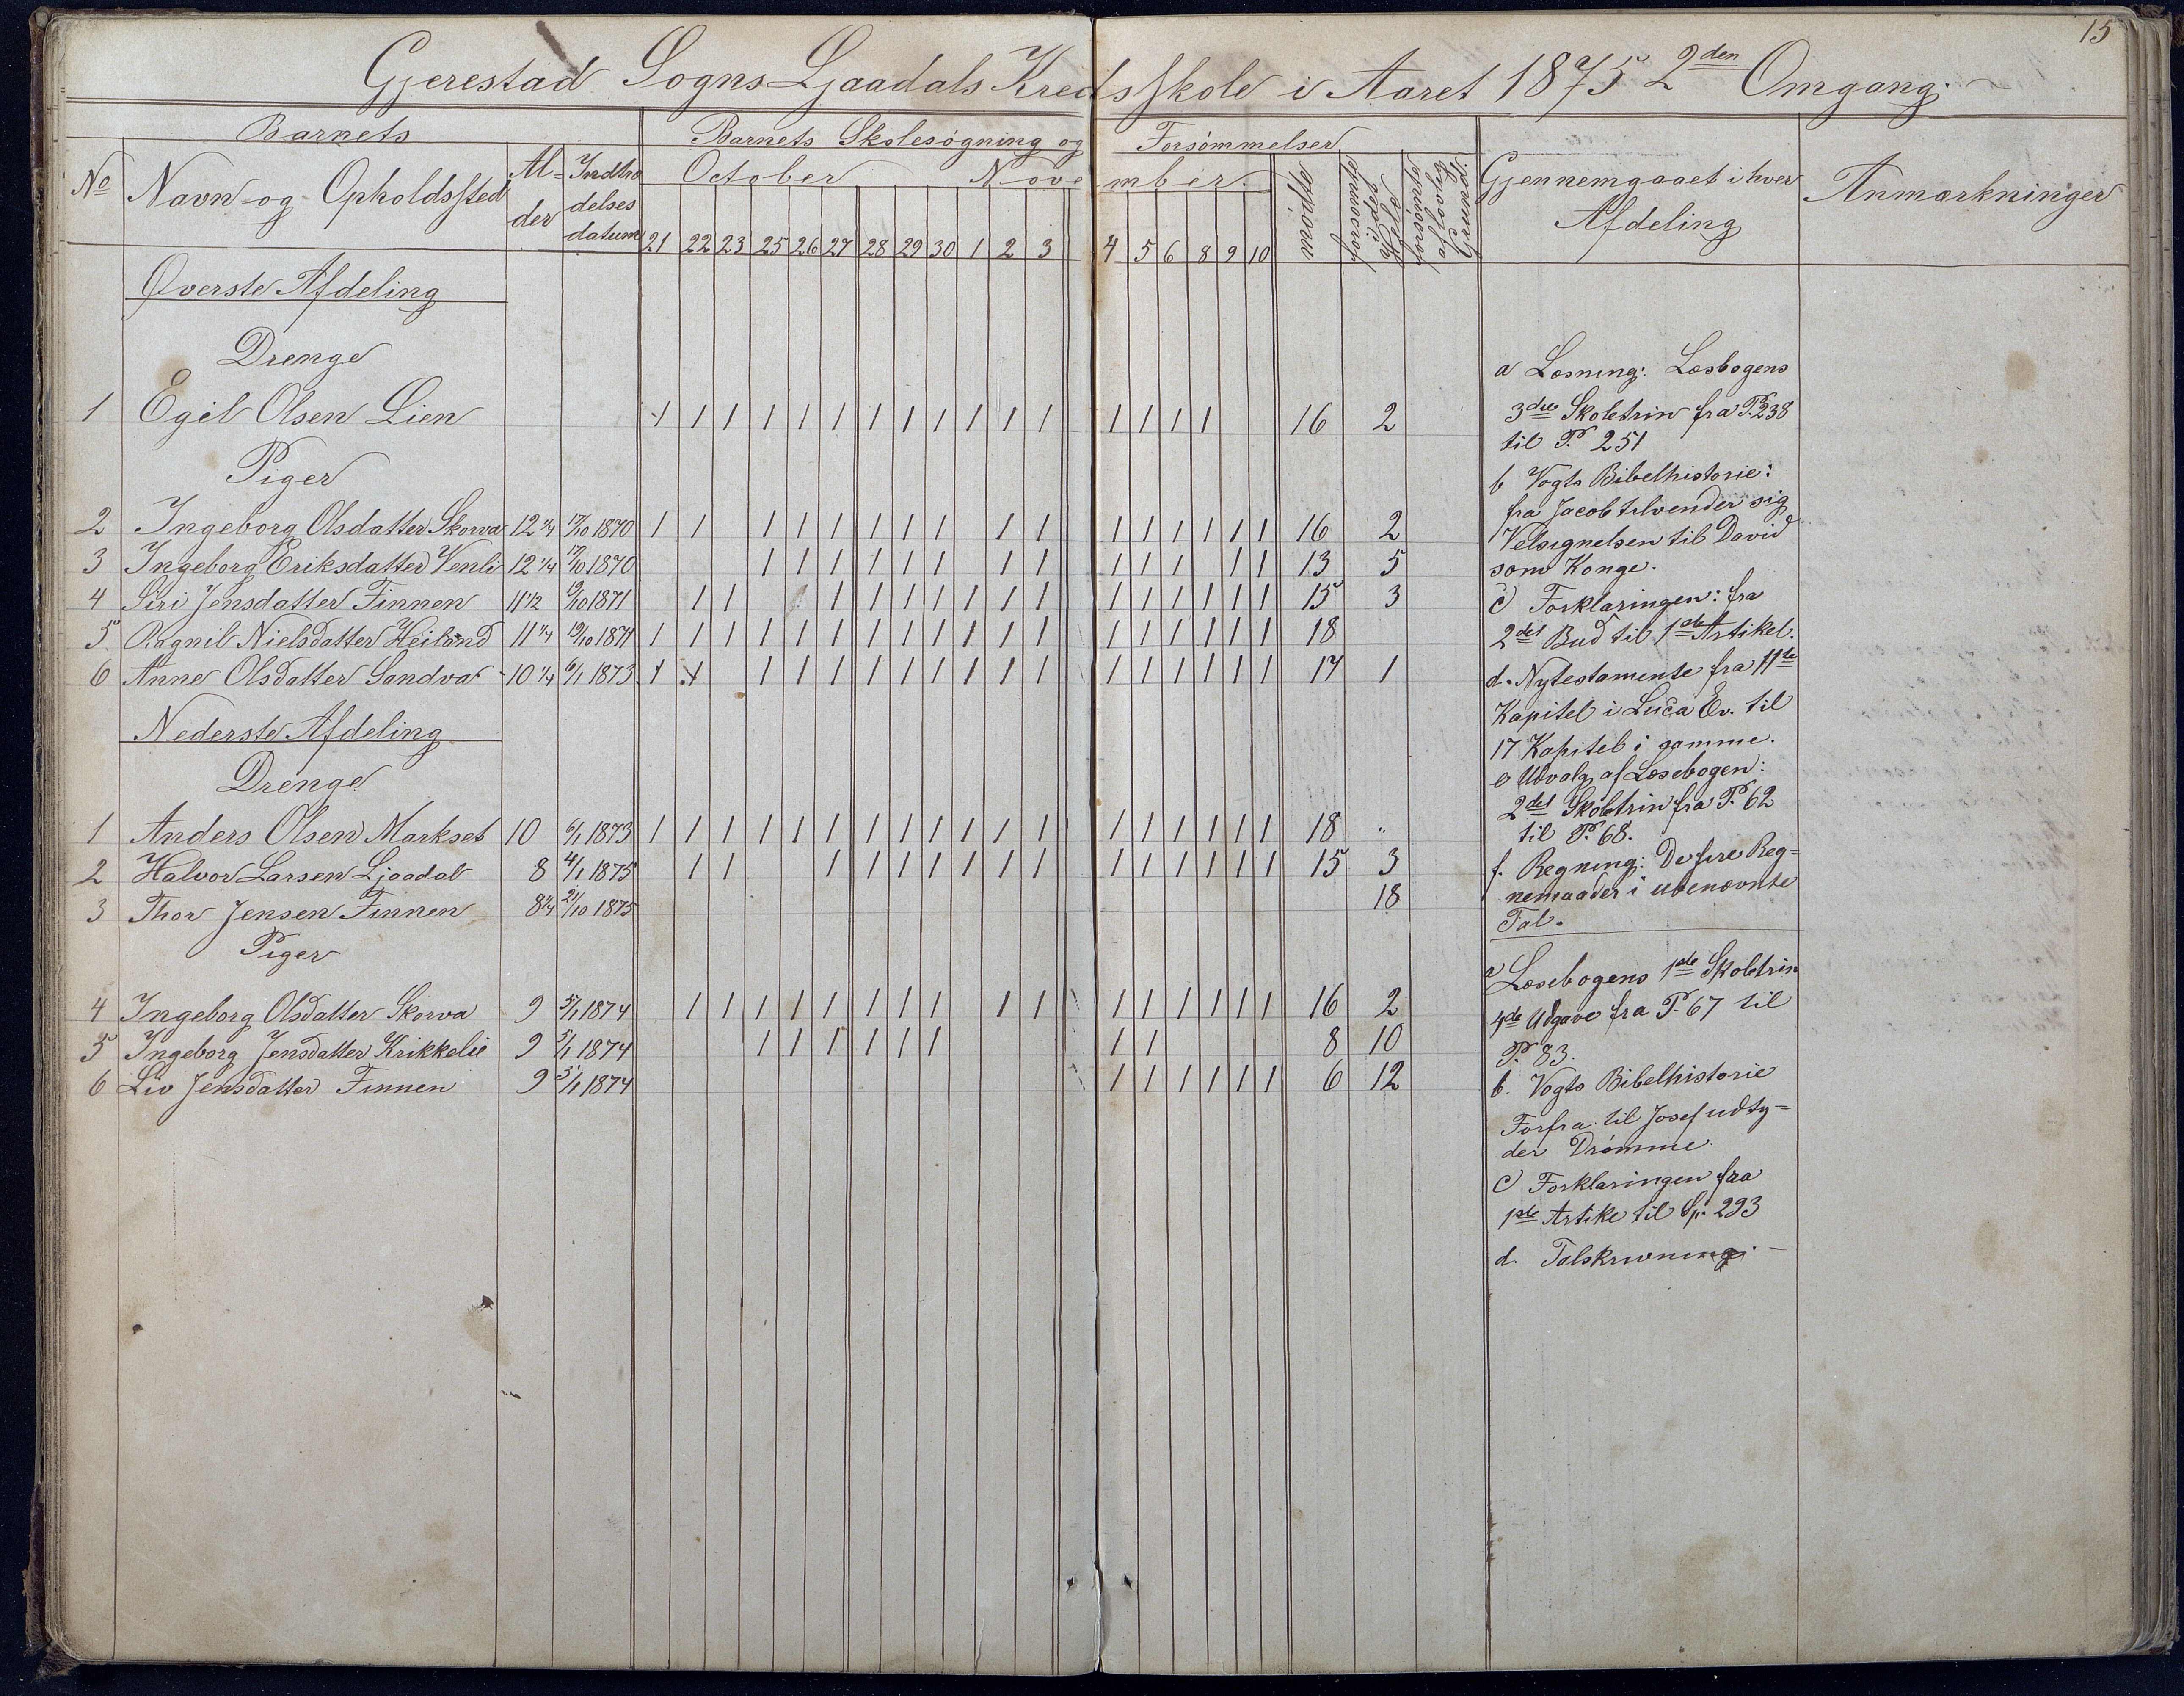 15
Gjerestad Sogns Ljaadals Kredsskole i Aaret 1875 2den Omgang.
Barnets
Barnets Skolesøgning og Forsømmelser
No
Navn og Opholdssted
Al-
der
Indtræ
delses
datum
October November
21 22 23 25 26 27 28 29 30 1 2 3 4 5 6 8 9 10
mødte
forsømte
forsømte
af lovlig
Grund.
Gjennemgaaet i hver
Afdeling
Anmærkninger
Øverste Afdeling
Drenge
1 Egil Olsen Lien 1 1 1 1 1 1 1 1 1 1 1 1 1 1 1 1 16 2
Piger
2 Ingeborg Olsdatter Skorva 12 1/4 17/10 1870 1 1 1 1 1 1 1 1 1 1 1 1 1 1 1 1 16 2
3 Ingeborg Eriksdatter Venli 12 1/4 17/10 1870 1 1 1 1 1 1 1 1 1 1 1 1 1 13 5
4 Siri Jensdatter Finnen 11 1/2 19/10 1871 1 1 1 1 1 1 1 1 1 1 1 1 1 1 1 15 3
5 Ragnil Nielsdatter Heiland 11 1/4 19/10 1871 1 1 1 1 1 1 1 1 1 1 1 1 1 1 1 1 1 1 18
6 Anne Olsdatter Sandva 10 1/4 6/1 1873 1 1 1 1 1 1 1 1 1 1 1 1 1 1 1 1 1 17 1
Nederste Afdeling
Drenge
1 Anders Olsen Markset 10 6/1 1873 1 1 1 1 1 1 1 1 1 1 1 1 1 1 1 1 1 1 18 "
2 Halvor Larsen Ljaadal 8 4/1 1875 1 1 1 1 1 1 1 1 1 1 1 1 1 1 1 15 3
3 Thor Jensen Finnen 8 1/4 21/10 1875 18
Piger
4 Ingeborg Olsdatter Skorva 9 5/1 1874 1 1 1 1 1 1 1 1 1 1 1 1 1 1 1 1 16 2
5 Ingeborg Jensdatter Krikkelie 9 5/1 1874 1 1 1 1 1 1 1 1 8 10
6 Liv Jensdatter Finnen 9 5/1 1874 1 1 1 1 1 1 6 12
a Læsning: Læsbogens
3die Skoletrin fra P. 238
til P. 251
b Vogts Bibelhistorie:
fra Jacob tilvender sig
Velsignelsen til David
som Konge.
c Forklaringen: fra
2det Bud til 1ste Artikel.
d. Nytestamente fra 11te
Kapitel i Luca Ev. til
17 Kapitel i samme.
e Udvalg af Læsebogen:
2det Skoletrin fra P. 62
til P. 68.
f. Regning: De fire Reg=
nemaader i ubenævnte
Tal.
a Læsebogens 1ste Skoletrin
4de Udgave fra P. 67 til
P. 83.
b. Vogts Bibelhistorie
Forfra til Josef udty=
der Drømme.
c Forklaringen fra
1ste Artike til Sp. 293
d. Talskrivning. -